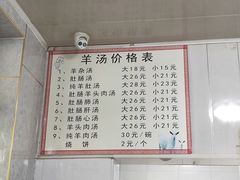 羊汤价格表
1、羊杂汤 大18元 小15元
2、肚肠汤 大26元 小21元
3、纯羊肚汤 大28元 小23元
4、肚肠羊头肉汤 大26元 小21元
5、肚肠肺汤 大26元 小21元
6、肚肠肝汤 大26元 小21元
7、肚肠心汤 大26元 小21元
8、羊头肉汤 大26元 小21元
9、纯羊肉汤 30元/碗
烧饼 2元/个